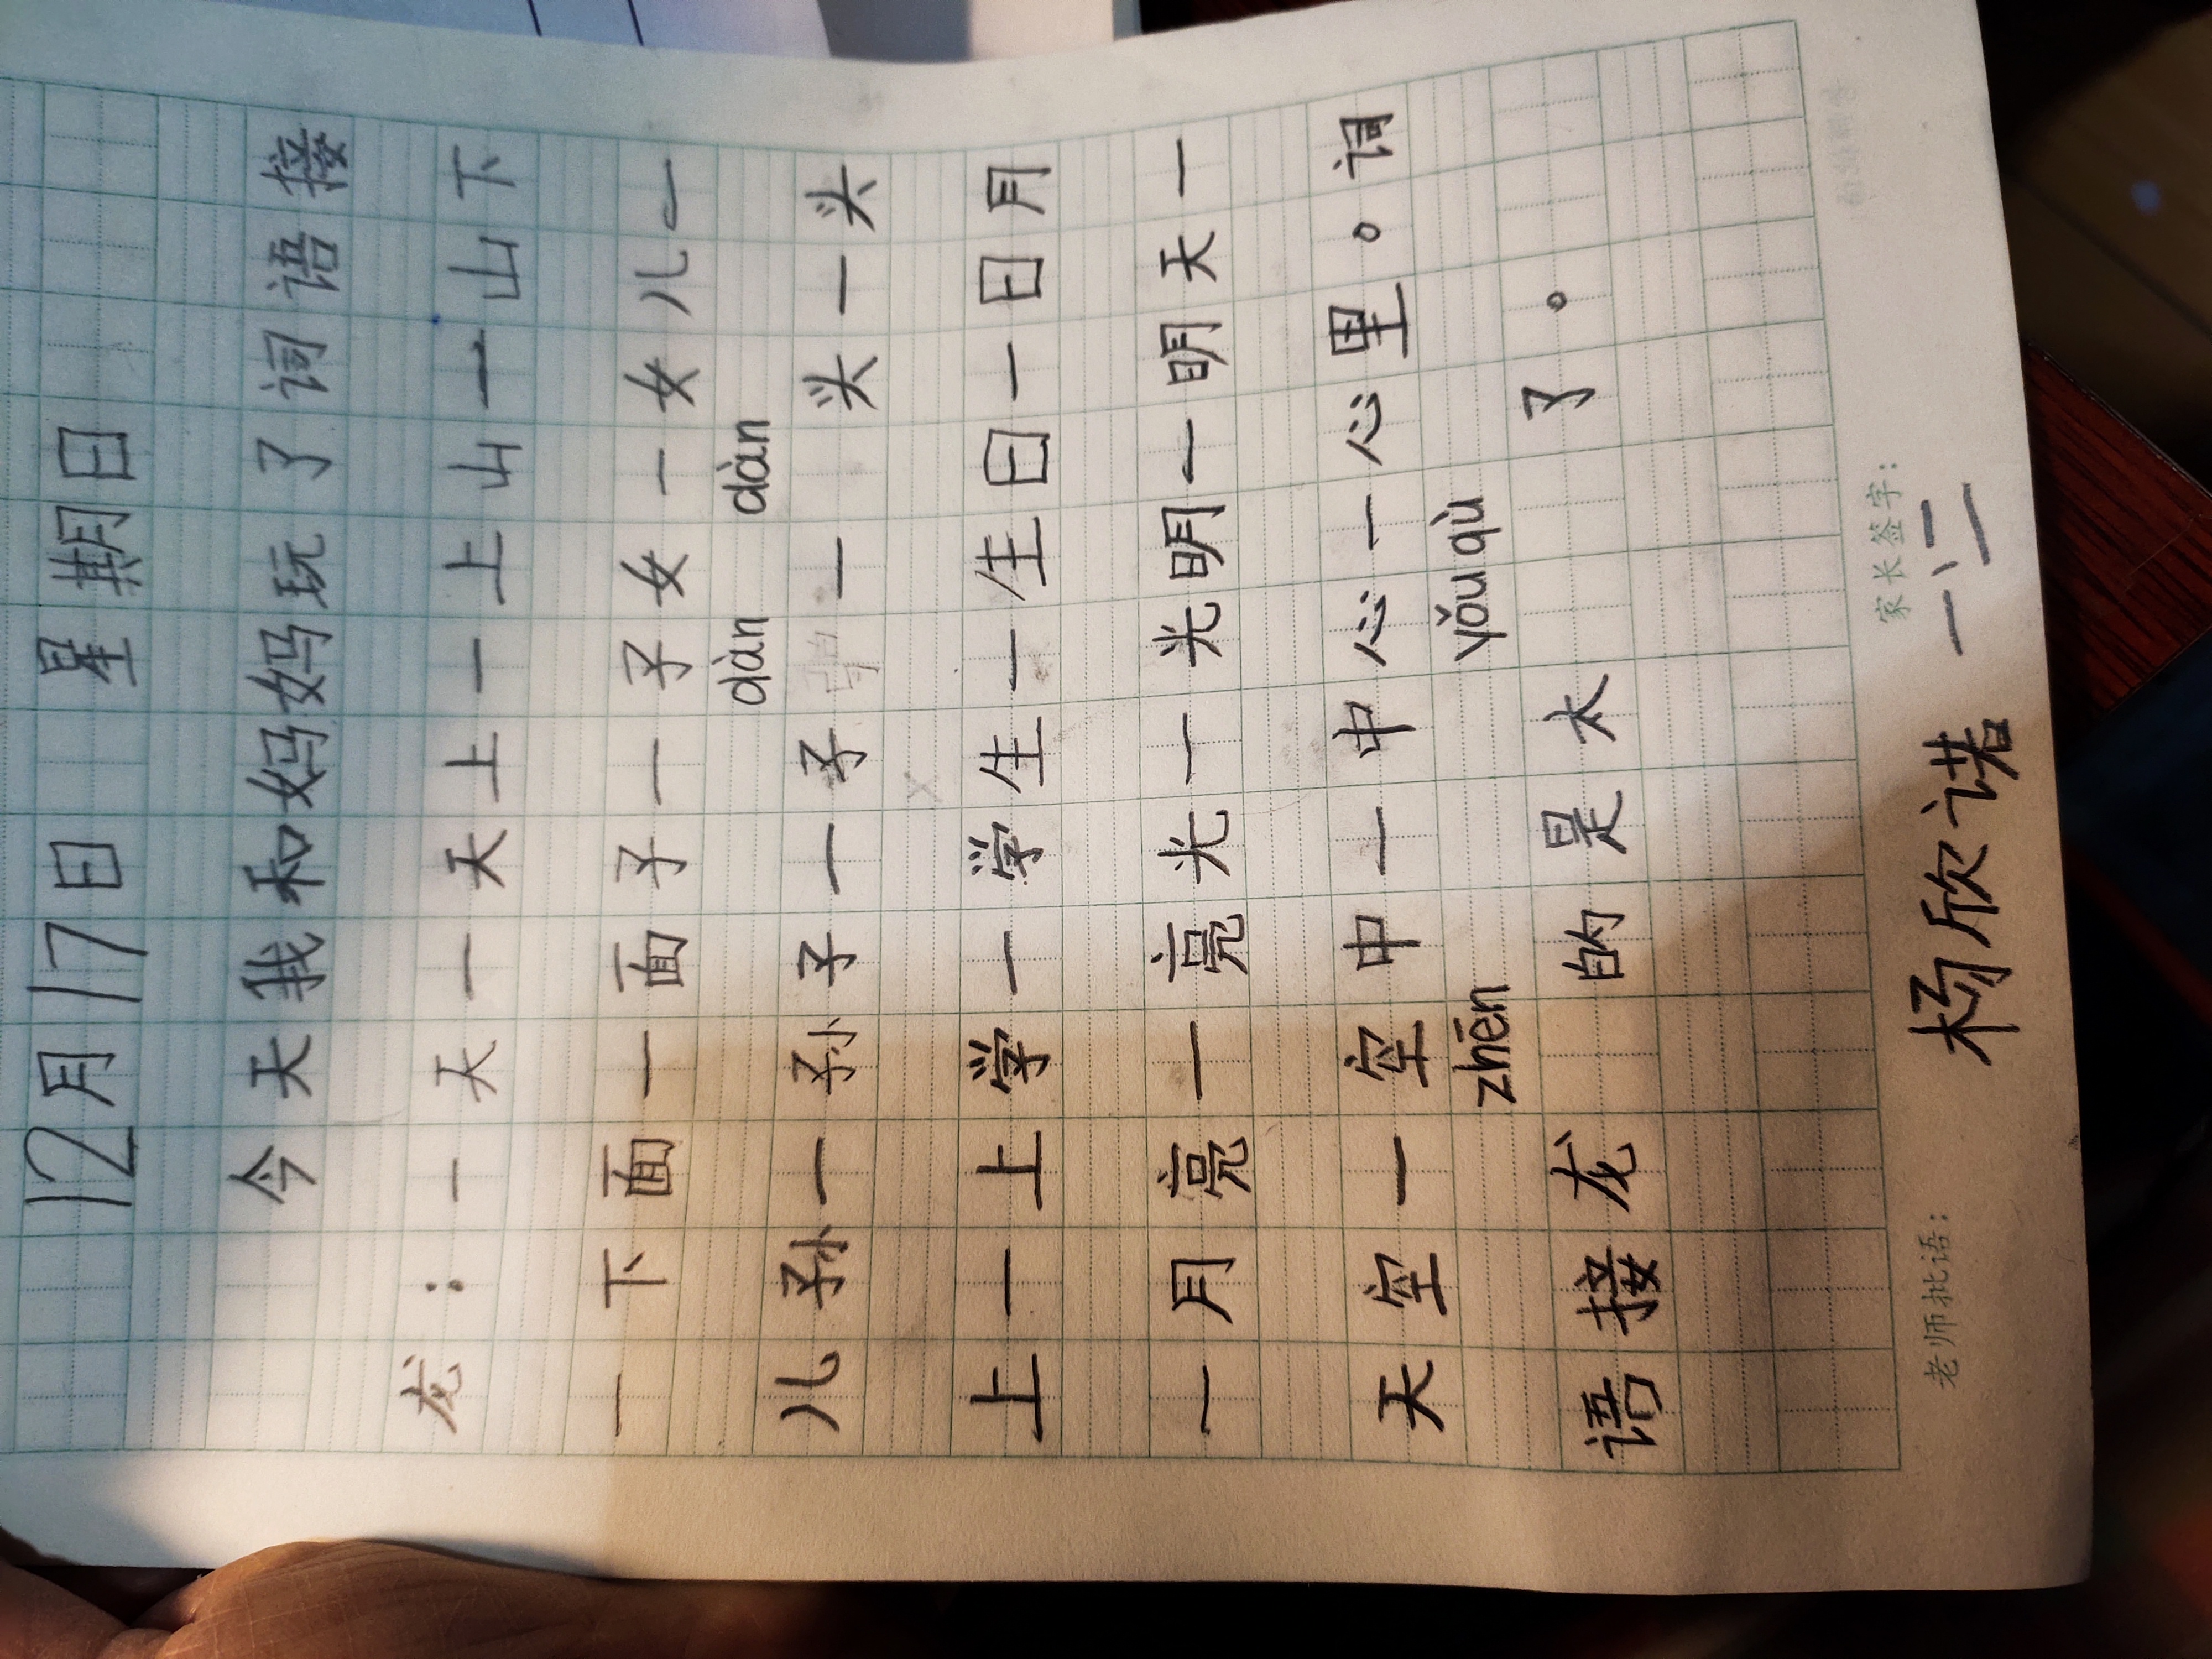 12月17日 星期日
今天我和妈妈玩了词语接
龙：一天一天上一上山一山下
一下面一面子一子女一女儿一
dàn dàn
儿孙一孙子一子 一 头一头
上一上学一学生一生日一日月
一月亮一亮光一光明一明天一
天空一空中一中心一心里。词
zhēn yǒu qù
语接龙 的是太 了。
老师批语： 家长签字：
杨欣诺 一、二